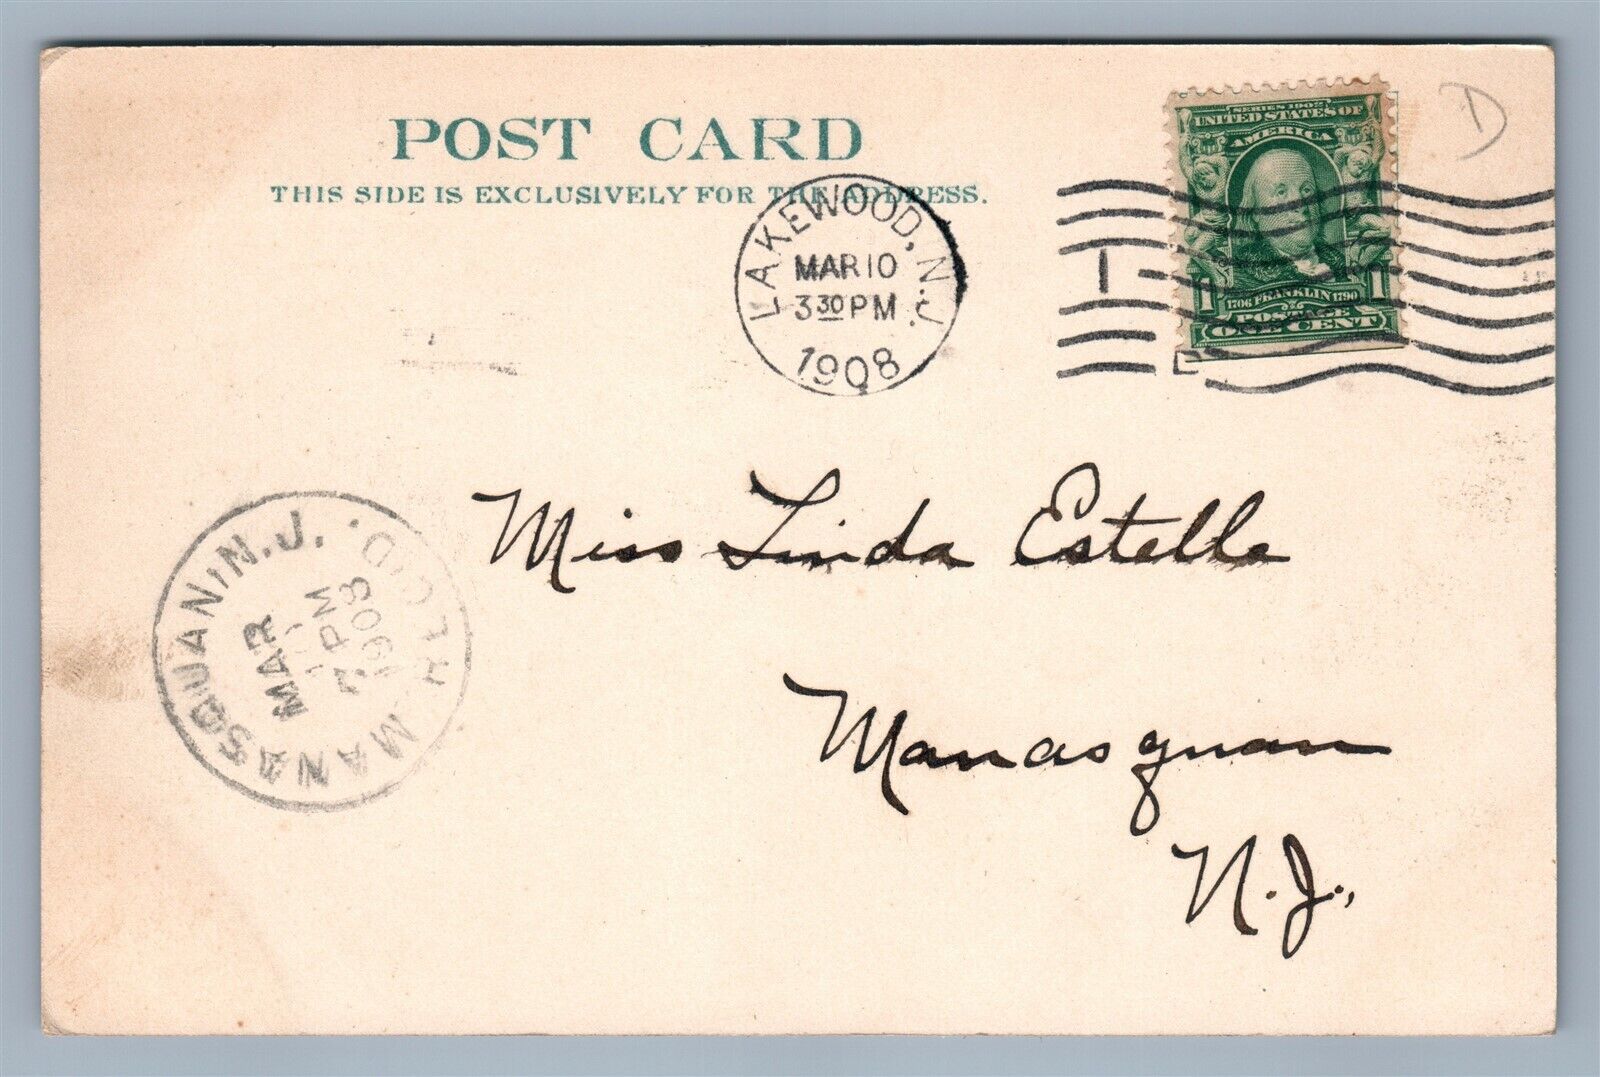 POST CARD
THIS SIDE IS EXCLUSIVELY FOR THE ADDRESS.
LAKEWOOD, N.J.
MAR 10
3 30 PM
1908
D
SERIES 1902
UNITED STATES OF
AMERICA
1 1
1706 FRANKLIN 1790
POSTAGE
ONE CENT
Miss Linda Estelle
Manasquan
N.J.,
MANASQUAN, N.J.
REC'D.
MAR
10
7 PM
1908